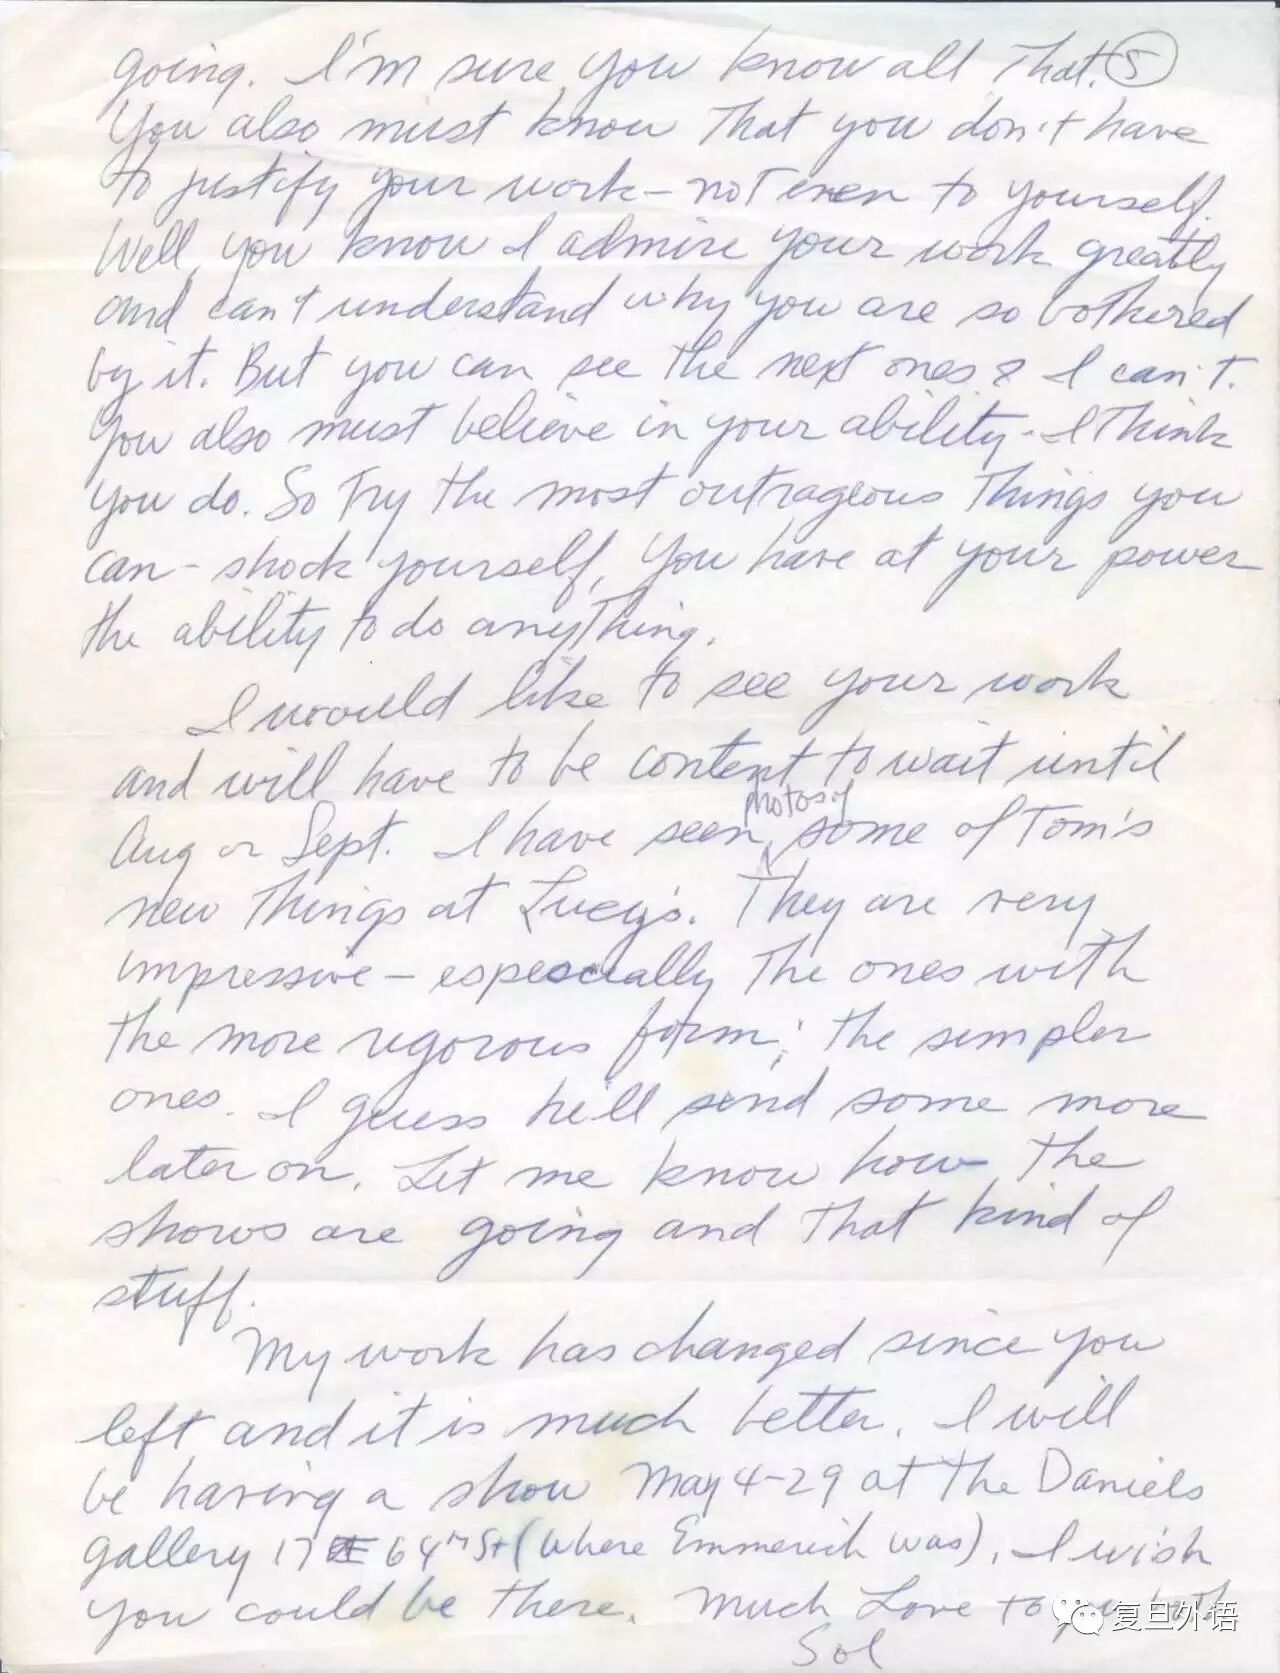 going. I'm sure you know all that. 5
You also must know that you don't have
to justify your work – not even to yourself.
Well, you know I admire your work greatly
and can't understand why you are so bothered
by it. But you can see the next ones & I can't.
You also must believe in your ability. I think
you do. So try the most outrageous things you
can – shock yourself. You have at your power
the ability to do anything.
I would like to see your work
and will have to be content to wait until
Aug or Sept. I have seen photos of some of Tom's
new things at Lucy's. They are very
impressive – especially the ones with
the more rigorous form; the simpler
ones. I guess he'll send some more
later on. Let me know how the
shows are going and that kind of
stuff.
My work has changed since you
left and it is much better. I will
be having a show May 4-29 at the Daniels
gallery 17 E 64th St (where Emmerich was). I wish
you could be there. Much Love to
Sol
复旦外语